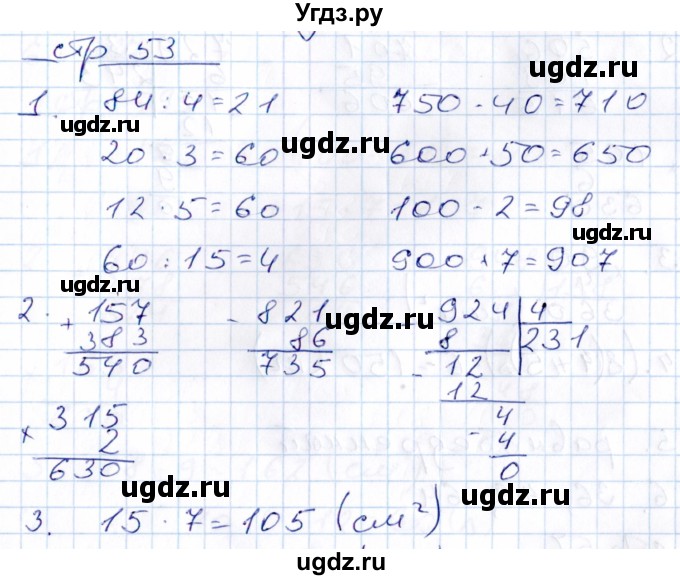 Угдз.ру
стр 53
ugdz.ru
1. 84 : 4 = 21 750 - 40 = 710
ugdz.ru
20 · 3 = 60 600 + 50 = 650
ugdz.ru ugdz.ru
12 · 5 = 60 100 - 2 = 98
ugdz.ru
60 : 15 = 4 900 + 7 = 907
ugdz.ru
2. + 157 - 821 - 924 | 4
383 86 8 231
540 735 - 12
ugdz.ru ugdz.ru
12
× 315 4
2 - 4
630 0
ugdz.ru ugdz.ru
3. 15 · 7 = 105 (см²)
ugdz.ru
ugdz.ru